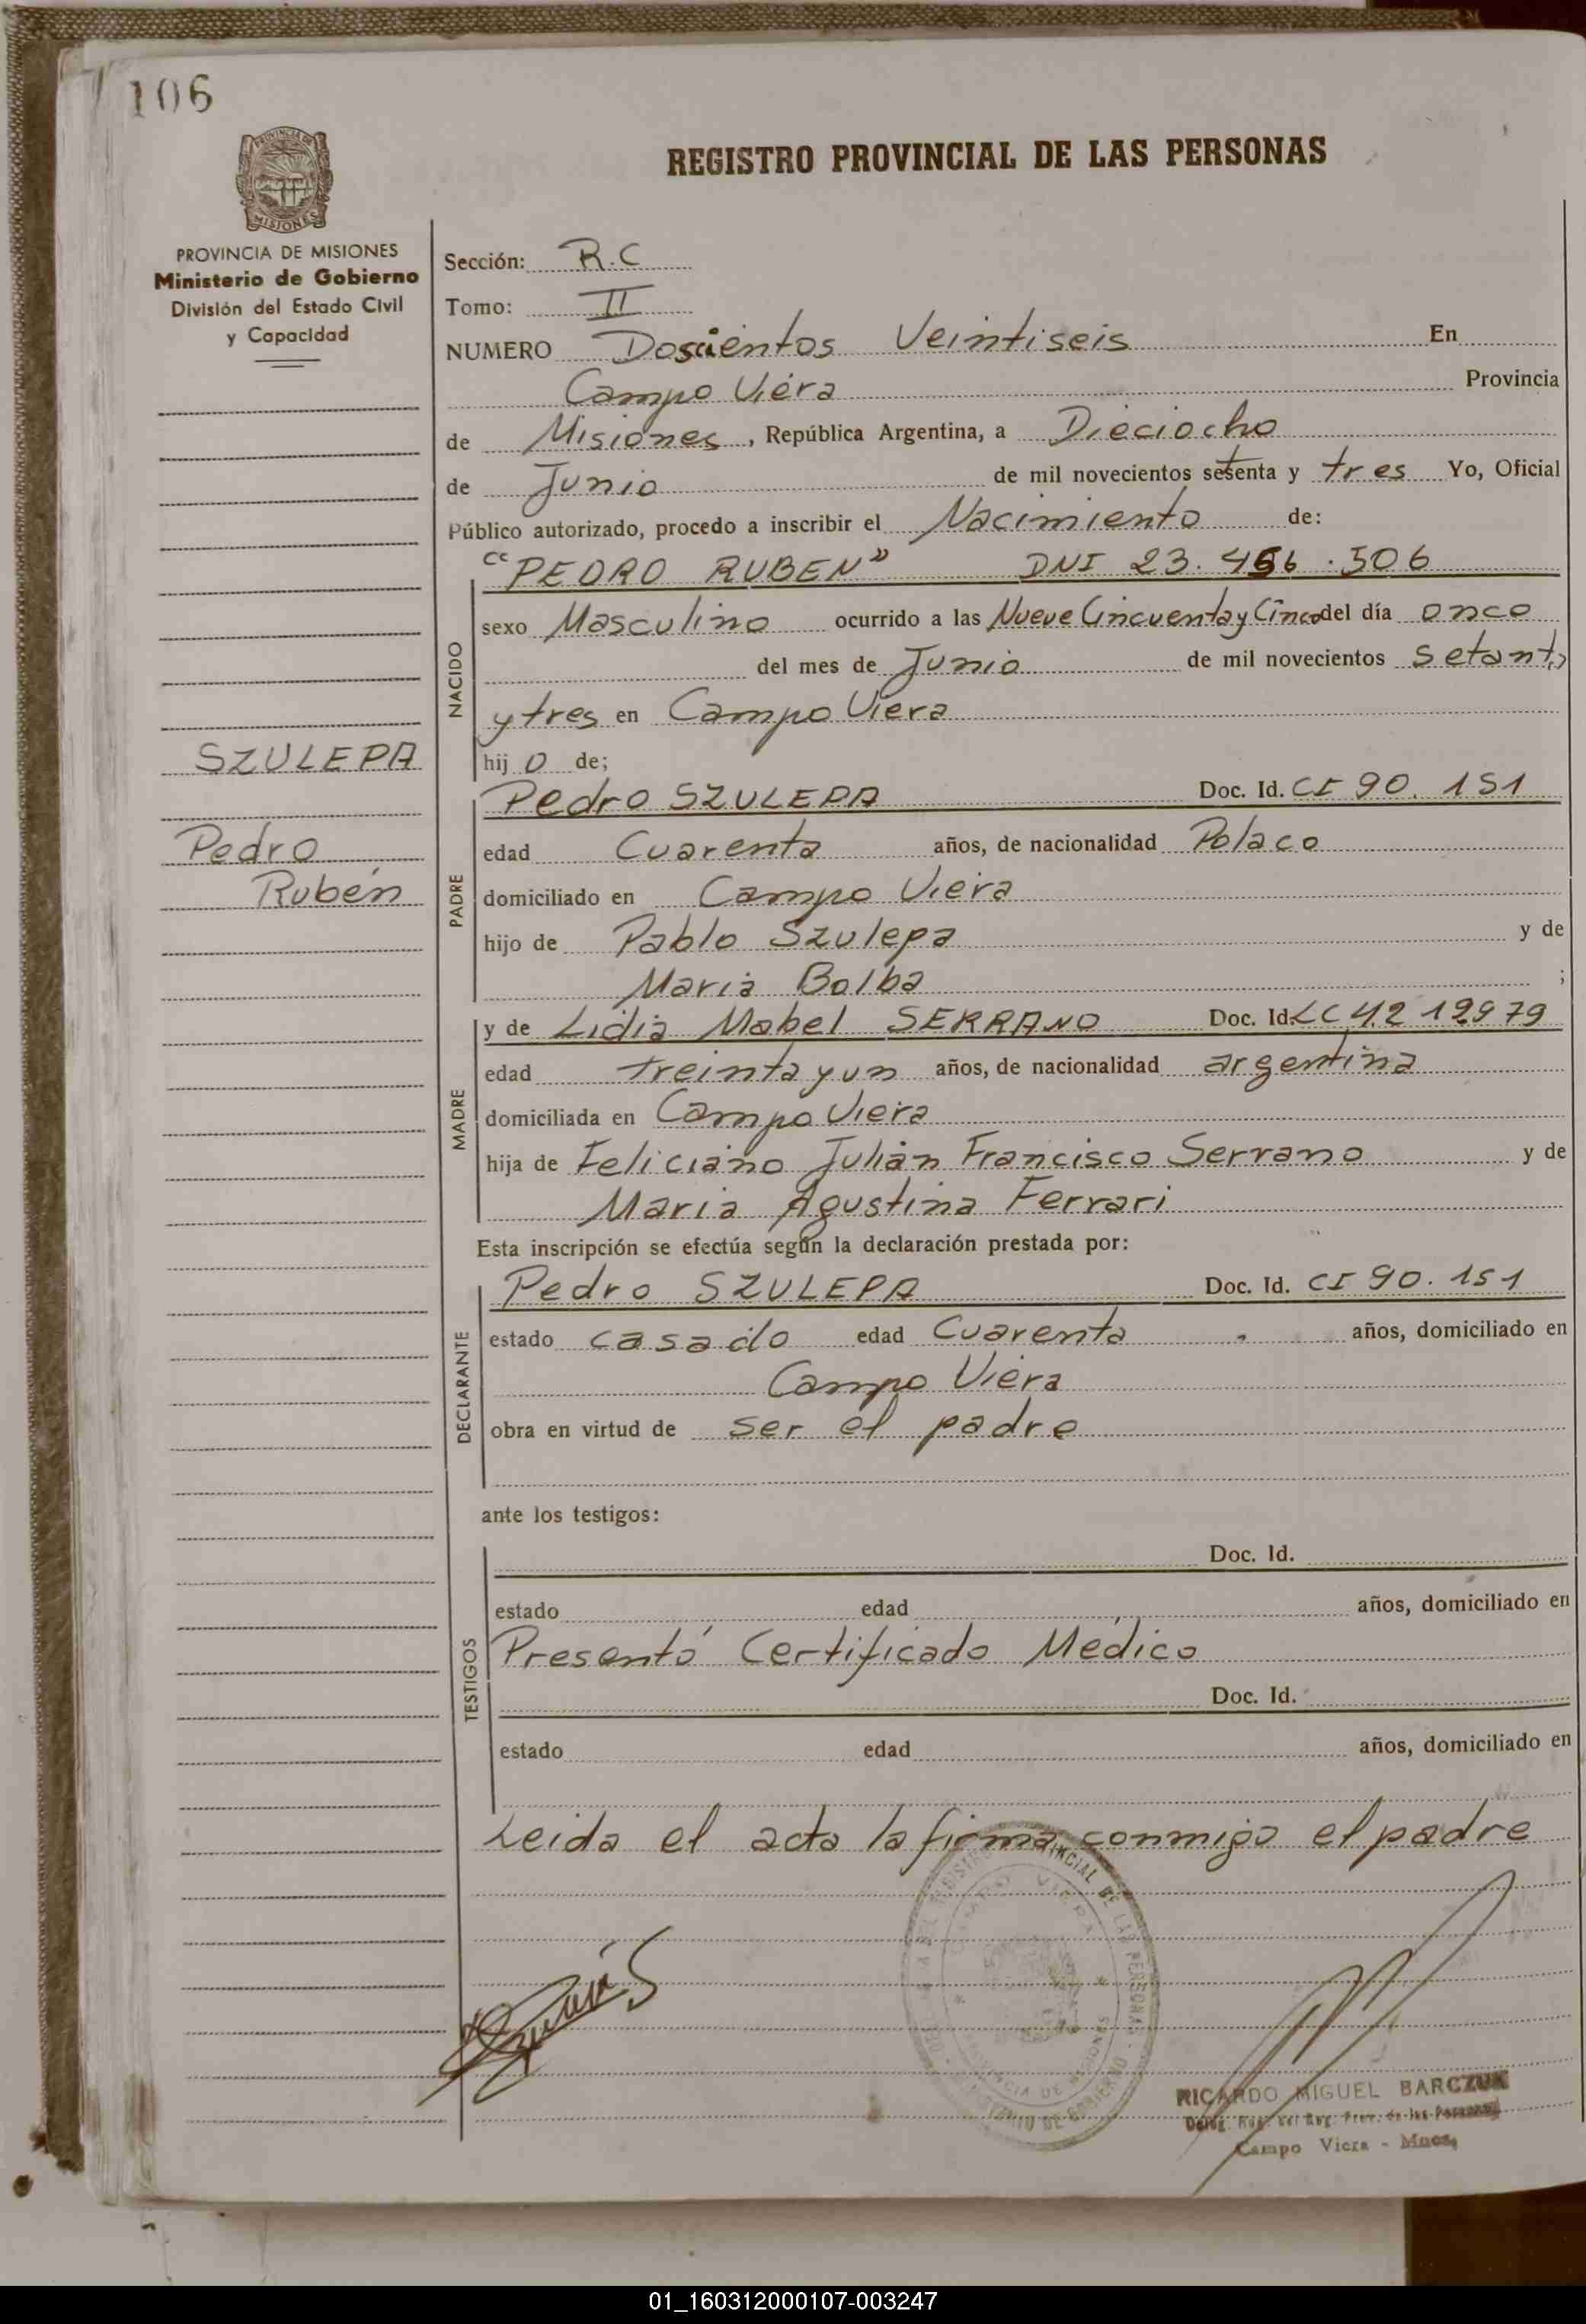 106
PROVINCIA DE
MISIONES
REGISTRO PROVINCIAL DE LAS PERSONAS
PROVINCIA DE MISIONES
Ministerio de Gobierno
División del Estado Civil
y Capacidad
SZULEPA
Pedro
Rubén
Sección: R.C
Tomo: II
NUMERO Doscientos Veintiseis En
Campo Viera Provincia
de Misiones, República Argentina, a Dieciocho
de Junio de mil novecientos setenta y tres Yo, Oficial
Público autorizado, procedo a inscribir el Nacimiento de:
"PEDRO RUBEN" DNI 23.456.506
NACIDO
sexo Masculino ocurrido a las Nueve Cincuenta y Cinco del día once
del mes de Junio de mil novecientos setenta
y tres en Campo Viera
hijo de;
PADRE
Pedro SZULEPA Doc. Id. CI 90.151
edad Cuarenta años, de nacionalidad Polaco
domiciliado en Campo Viera
hijo de Pablo Szulepa y de
Maria Bolba ;
MADRE
y de Lidia Mabel SERRANO Doc. Id. LC 4.219979
edad treinta y un años, de nacionalidad argentina
domiciliada en Campo Viera
hija de Feliciano Julián Francisco Serrano y de
Maria Agustina Ferrari
Esta inscripción se efectúa según la declaración prestada por:
DECLARANTE
Pedro SZULEPA Doc. Id. CI 90.151
estado casado edad Cuarenta años, domiciliado en
Campo Viera
obra en virtud de ser el padre
ante los testigos:
TESTIGOS
Doc. Id.
estado edad años, domiciliado en
Presentó Certificado Médico
Doc. Id.
estado edad años, domiciliado en
Leida el acta la firma conmigo el padre
RICARDO MIGUEL BARCZUK
Campo Viera - Mnes.
01_160312000107-003247